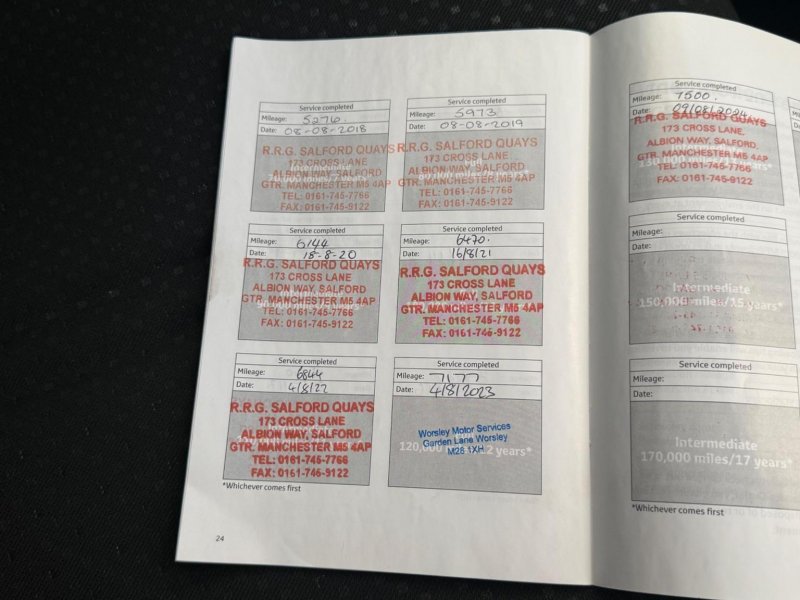 Service completed
Mileage: 5276.
Date: 08-08-2018
R.R.G. SALFORD QUAYS
173 CROSS LANE
ALBION WAY, SALFORD
GTR. MANCHESTER M5 4AP
TEL: 0161-745-7766
FAX: 0161-745-9122
Service completed
Mileage: 5973.
Date: 08-08-2019
R.R.G. SALFORD QUAYS
173 CROSS LANE
ALBION WAY, SALFORD
GTR. MANCHESTER M5 4AP
TEL: 0161-745-7766
FAX: 0161-745-9122
Service completed
Mileage: 6144
Date: 18-8-20
R.R.G. SALFORD QUAYS
173 CROSS LANE
ALBION WAY, SALFORD
GTR. MANCHESTER M5 4AP
TEL: 0161-745-7766
FAX: 0161-745-9122
Service completed
Mileage: 6470.
Date: 16/8/21
R.R.G. SALFORD QUAYS
173 CROSS LANE
ALBION WAY, SALFORD
GTR. MANCHESTER M5 4AP
TEL: 0161-745-7766
FAX: 0161-745-9122
Service completed
Mileage: 6844
Date: 4/8/22
R.R.G. SALFORD QUAYS
173 CROSS LANE
ALBION WAY, SALFORD
GTR. MANCHESTER M5 4AP
TEL: 0161-745-7766
FAX: 0161-745-9122
Service completed
Mileage: 7177
Date: 4/8/2023
Worsley Motor Services
Garden Lane Worsley
M28 1XH
120,000 12 years*
*Whichever comes first
24
Service completed
Mileage: 7500.
Date: 09/08/2024
R.R.G. SALFORD QUAYS
173 CROSS LANE,
ALBION WAY, SALFORD,
GTR. MANCHESTER M5 4AP
TEL: 0161-745-7766
FAX: 0161-745-9122
Service completed
Mileage:
Date:
Intermediate
150,000 miles/15 years*
Service completed
Mileage:
Date:
Intermediate
170,000 miles/17 years*
*Whichever comes first